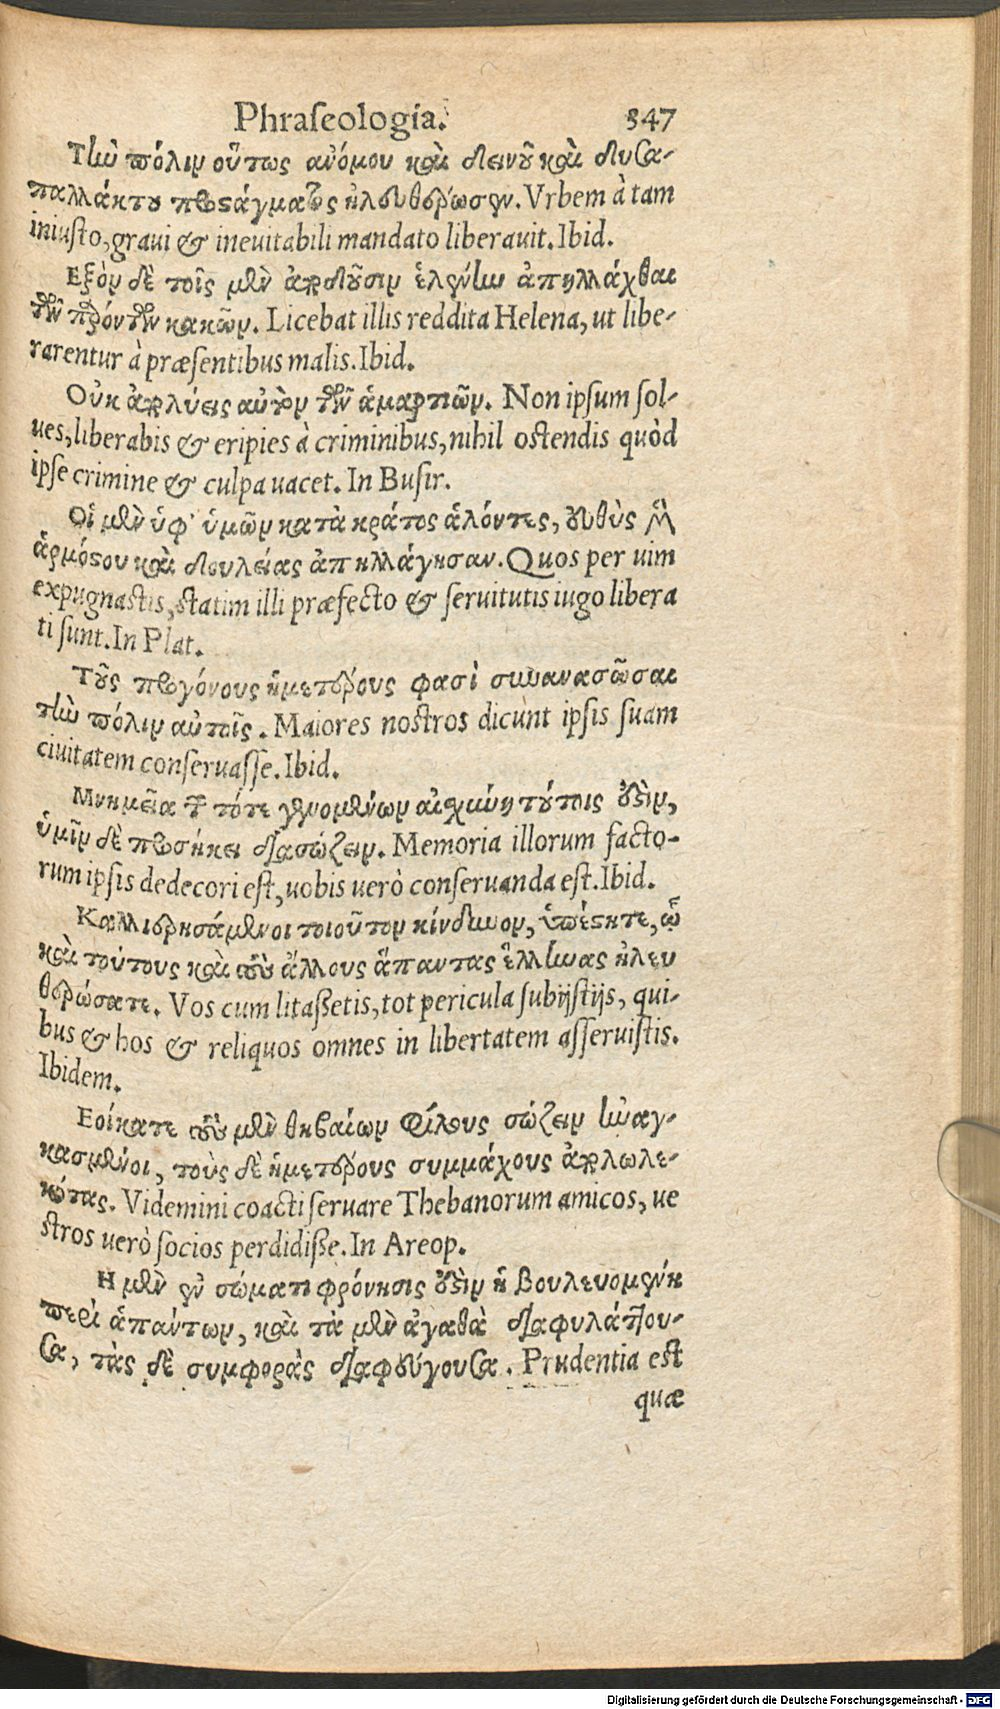 Phraſeologia. 347
Τὴν πόλιν οὕτως ἀνόμου καὶ δεινοῦ καὶ δυσα-
παλλάκτου προστάγματος ἠλευθέρωσεν. Vrbem à tam
iniuſto, graui & ineuitabili mandato liberauit. Ibid.
Εξὸν δὲ τοῖς μὲν ἀποδοῦσιν ἑλένην ἀπηλλάχθαι
τῶν παρόντων κακῶν. Licebat illis reddita Helena, ut libe-
rarentur à præſentibus malis. Ibid.
Οὐκ ἀπολύεις αὐτὸν τῶν ἁμαρτιῶν. Non ipſum ſol-
ues, liberabis & eripies à criminibus, nihil oſtendis quòd
ipſe crimine & culpa uacet. In Buſir.
Οἱ μὲν ὑφ' ὑμῶν κατὰ κράτος ἁλόντες, εὐθὺς μὲν
ἁρμόστου καὶ δουλείας ἀπηλλάγησαν. Quos per uim
expugnaſtis, ſtatim illi præfecto & ſeruitutis iugo libera
ti ſunt. In Plat.
Τοὺς προγόνους ἡμετέρους φασὶ συνανασῶσαι
τὴν πόλιν αὐτοῖς. Maiores noſtros dicunt ipſis ſuam
ciuitatem conſeruaſſe. Ibid.
Μνημεῖα τῶν τότε γενομένων αἰσχύνη τούτοις ἐστὶν,
ὑμῖν δὲ προσήκει διασώζειν. Memoria illorum facto-
rum ipſis dedecori eſt, uobis uerò conſeruanda eſt. Ibid.
Καλλιερησάμενοι τοιοῦτον κίνδυνον, ὑπέστητε, ᾧ
καὶ τούτους καὶ τοὺς ἄλλους ἅπαντας ἕλληνας ἠλευ
θερώσατε. Vos cum litaßetis, tot pericula ſubijſtijs, qui-
bus & hos & reliquos omnes in libertatem aſſeruiſtis.
Ibidem.
Εοίκατε τοὺς μὲν θηβαίων φίλους σώζειν ἠναγ-
κασμένοι, τοὺς δὲ ἡμετέρους συμμάχους ἀπολωλε-
κότας. Videmini coacti ſeruare Thebanorum amicos, ue
ſtros uerò ſocios perdidiße. In Areop.
Η μὲν ἐν σώματι φρόνησις ἐστὶν ἡ βουλευομένη
περὶ ἁπάντων, καὶ τὰ μὲν ἀγαθὰ διαφυλάττου-
σα, τὰς δὲ συμφορὰς διαφεύγουσα. Prudentia eſt
quæ
Digitalisierung gefördert durch die Deutsche Forschungsgemeinschaft - DFG